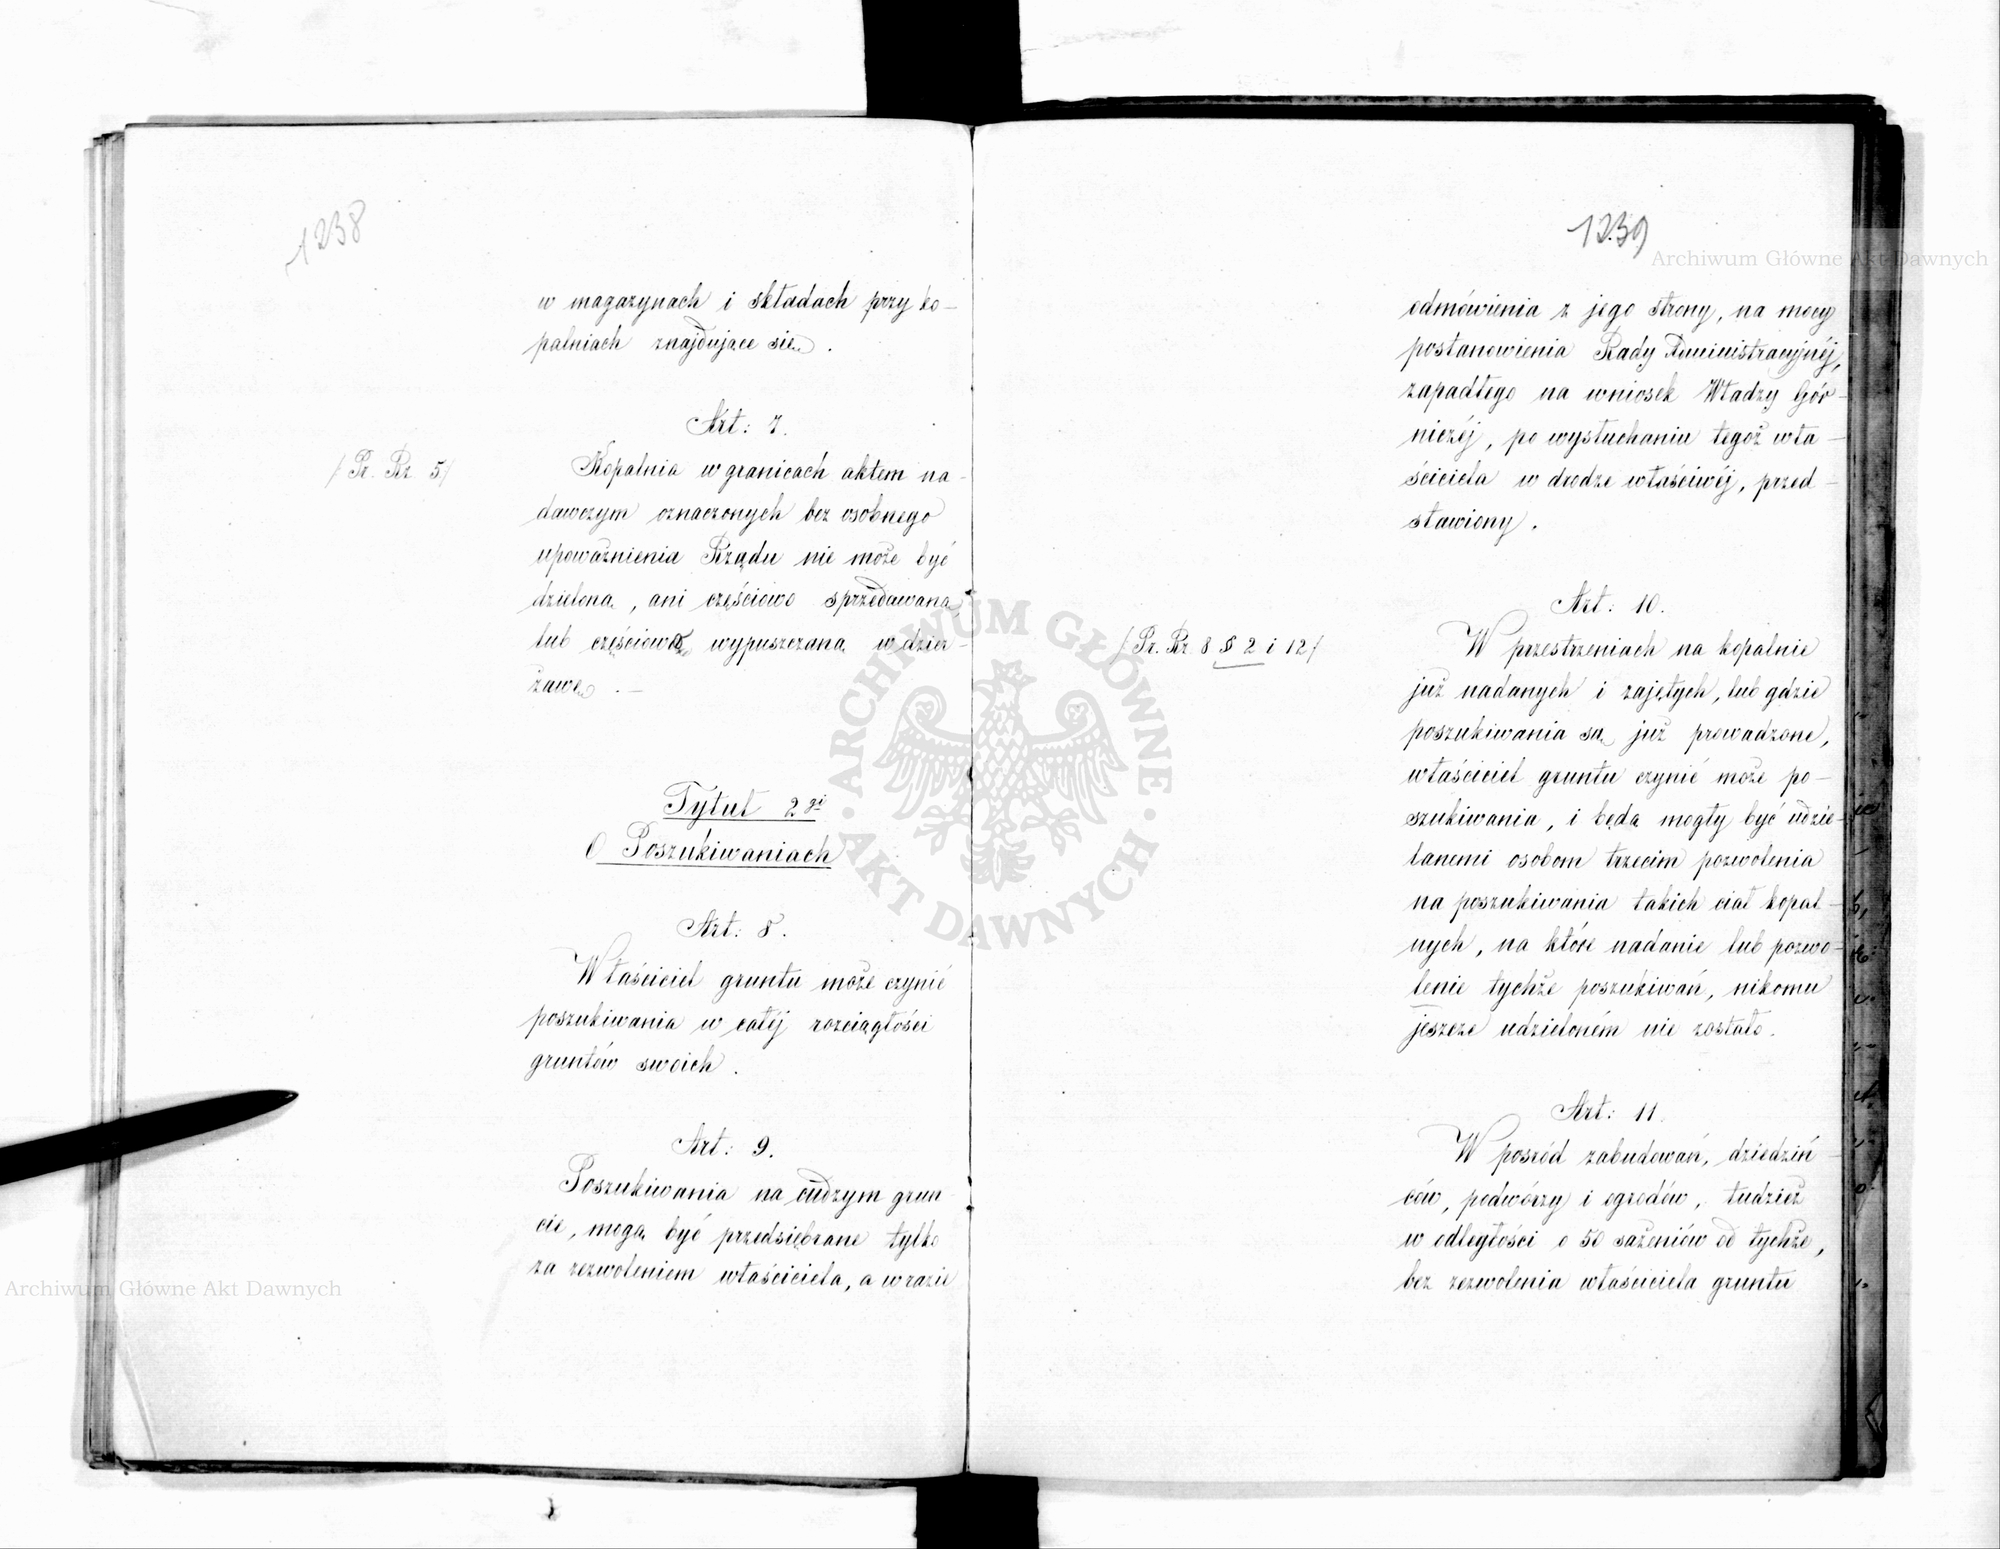 1238
w magazynach i składach przy ko-
palniach znajdujące się.
Art: 7.
/Pr. Rz 5/
Kopalnia w granicach aktem na-
dawczym oznaczonych bez osobnego
upoważnienia Rządu nie może być
dzieloną, ani częściowo sprzedawaną
lub częściowo wypuszczaną w dzier-
żawę. —
Tytuł 2gi
O Poszukiwaniach
Art: 8.
Właściciel gruntu może czynić
poszukiwania w całéj rozciągłości
gruntów swoich.
Art: 9.
Poszukiwania na cudzym grun-
cie, mogą być przedsiębrane tylko
za zezwoleniem właściciela, a w razie
1239
odmówienia z jego strony, na mocy
postanowienia Rady Administracyjnéj,
zapadłego na wniosek Władzy Gór-
niczéj, po wysłuchaniu tegoż wła-
ściciela w drodze właściwéj, przed-
stawiony.
Art: 10.
/Pr. Rz. 8 § 2 i 12/
W przestrzeniach na kopalnie
już nadanych i zajętych, lub gdzie
poszukiwania są już prowadzone,
właściciel gruntu czynić może po-
szukiwania, i będą mogły być udzie-
lanemi osobom trzecim pozwolenia
na poszukiwania takich ciał kopal-
nych, na które nadanie lub pozwo-
lenie tychże poszukiwań, nikomu
jeszcze udzieloném nie zostało.
Art: 11.
W pośród zabudowań, dziedziń-
ców, podwórzy i ogrodów, tudzież
w odległości o 50 sażeniów od tychże,
bez zezwolenia właściciela gruntu
Archiwum Główne Akt Dawnych
Archiwum Główne Akt Dawnych
ARCHIWUM GŁÓWNE · AKT DAWNYCH ·